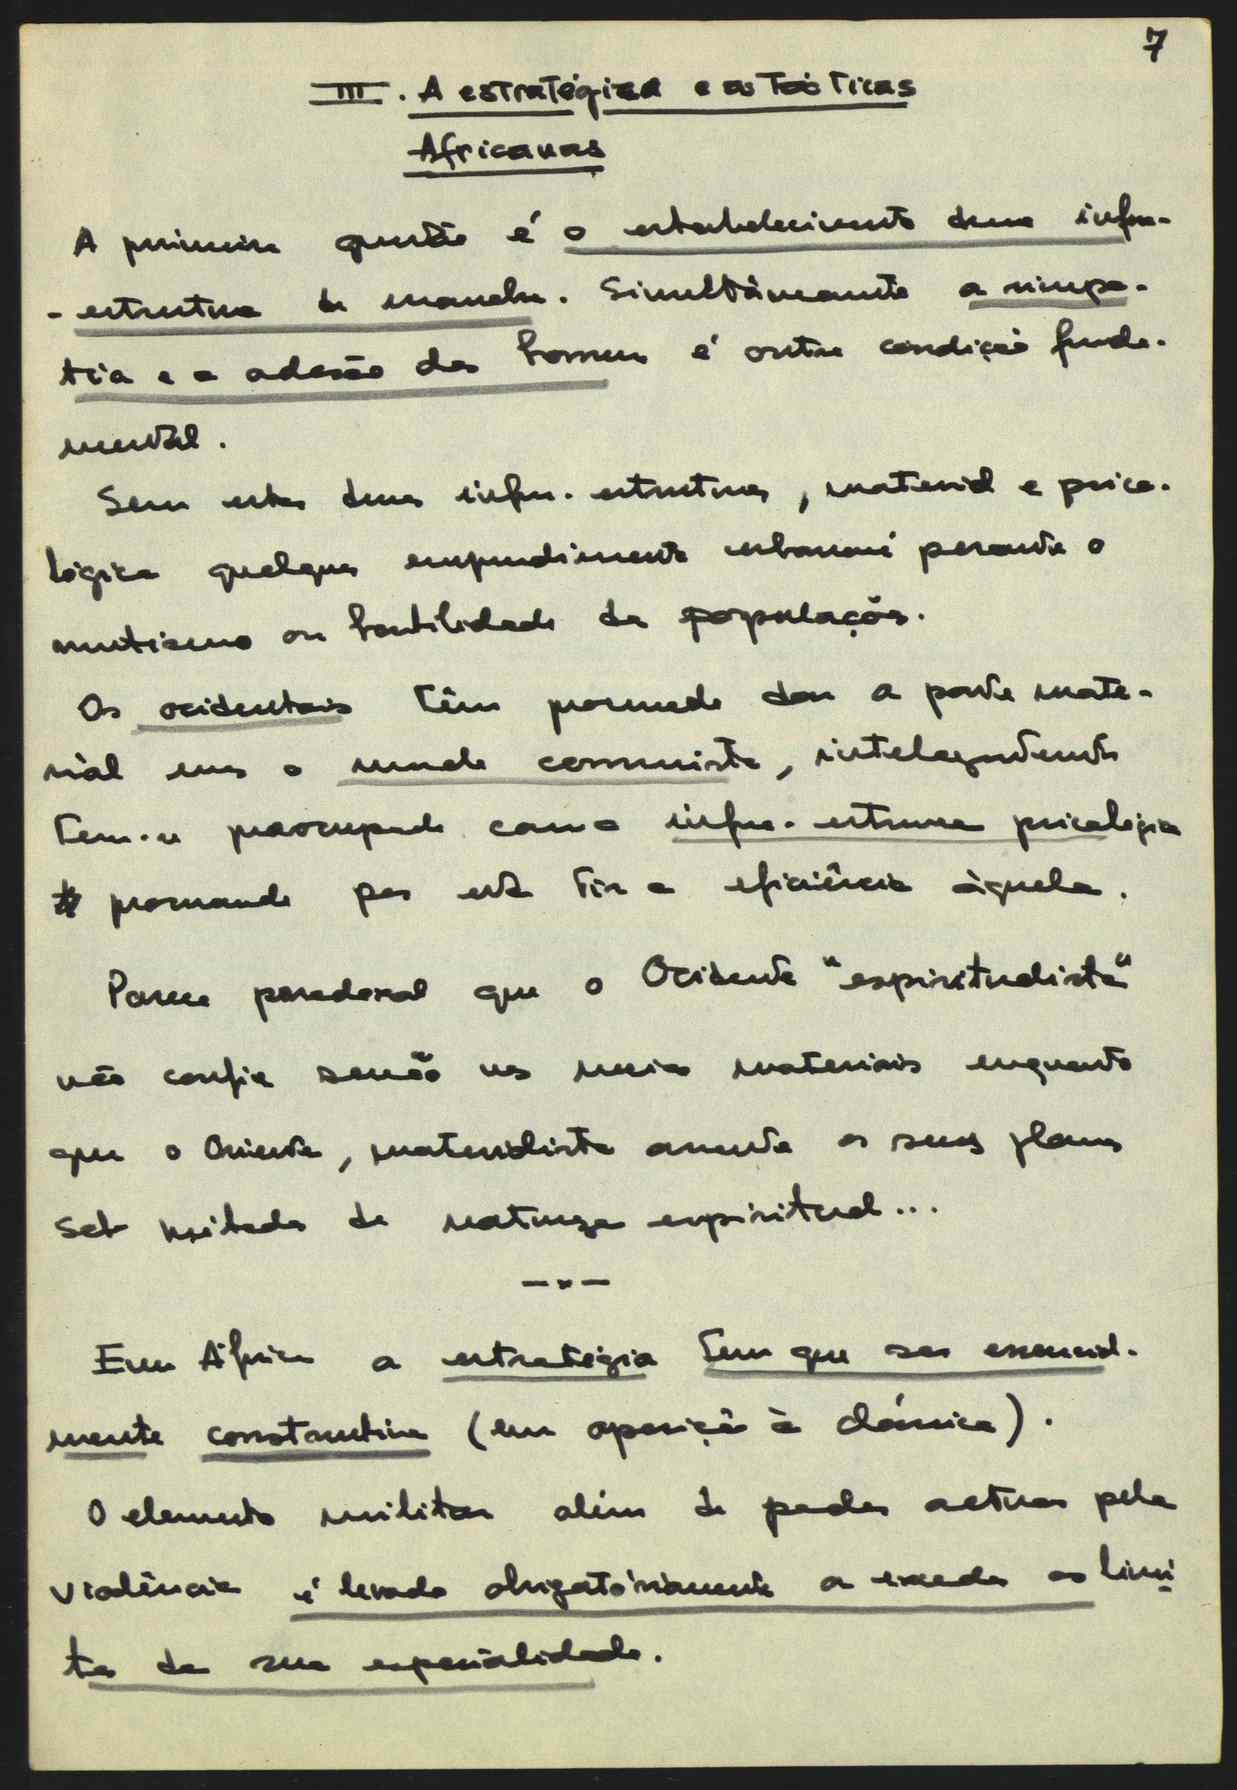 7
III. A estratégica e as Tácticas
Africanas
A primeira questão é o estabelecimento duma infra-
-estrutura de manobra. Simultâneamente a simpa-
tia e a adesão dos homens é outra condição funda-
mental.
Sem estas duas infra-estruturas, material e psico-
lógica qualquer empreendimento esbarrará perante o
mutismo ou hostilidade das populações.
Os ocidentais têm procurado dar a parte mate-
rial mas o mundo comunista, inteligentemente
tem-se preocupado com a infra-estrutura psicológica
procurando por esta tirar a eficiência àquela.
Parece paradoxal que o Ocidente "espiritualista"
não confie senão nos meios materiais enquanto
que o Oriente, materialista assenta os seus planos
de natureza espiritual...
-x-
Em África a estratégia tem que ser essencial-
mente construtiva (em oposição à clássica).
O elemento militar além de poder actuar pela
violência é levado obrigatóriamente a exceder os limi
tes da sua especialidade.